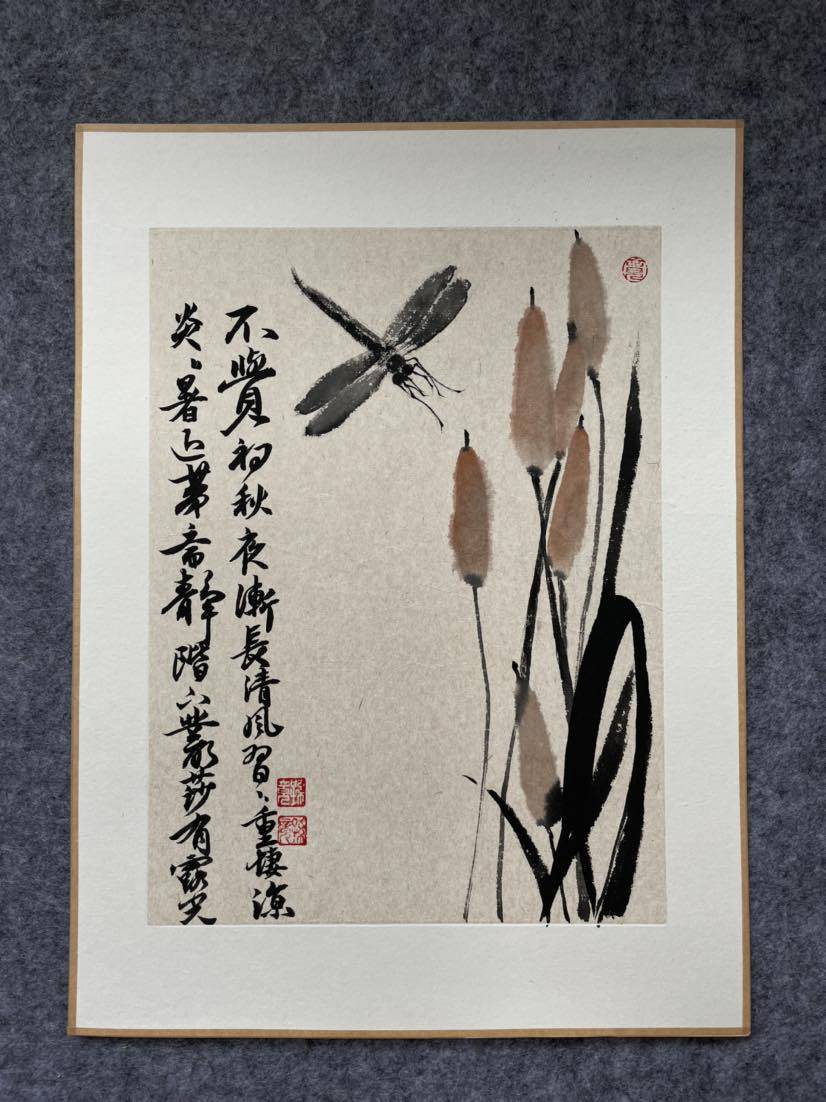 不覺初秋夜漸長清風習〻重悽涼
炎〻暑退茅齋靜階下叢莎有露光